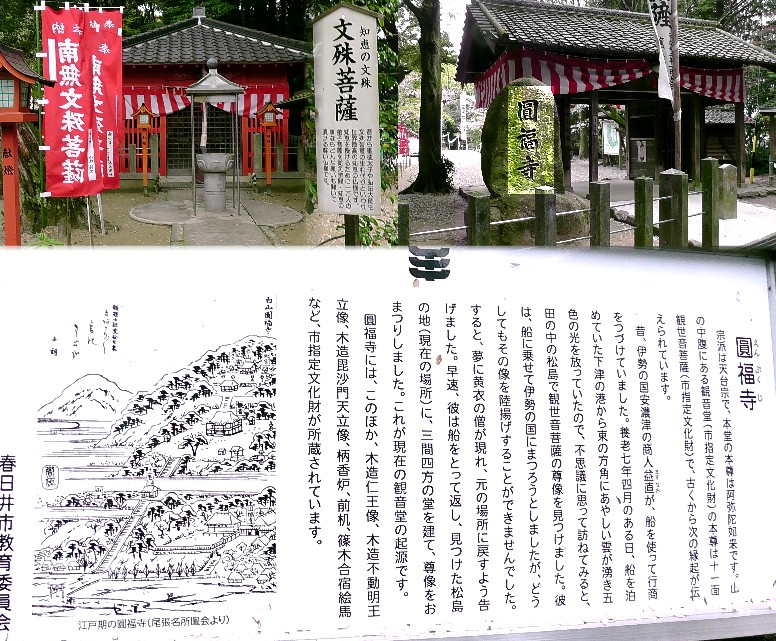 奉納
南無文殊菩薩
奉
献燈
知恵の文殊
文殊菩薩
圓福寺
薩
圓福寺
えんぷくじ
宗派は天台宗で、本堂の本尊は阿弥陀如来です。山
の中腹にある観音堂(市指定文化財)の本尊は十一面
観世音菩薩(市指定文化財)で、古くから次の縁起が伝
えられています。
昔、伊勢の国安濃津の商人益直が、船を使って行商
をつづけていました。養老七年四月のある日、船を泊
めていた下津の港から東の方角にあやしい雲が湧き五
色の光を放っていたので、不思議に思って訪ねてみると、
田の中の松島で観世音菩薩の尊像を見つけました。彼
は、船に乗せて伊勢の国にまつろうとしましたが、どう
してもその像を陸揚げすることができませんでした。
すると、夢に黄衣の僧が現れ、元の場所に戻すよう告
げました。早速、彼は船をとって返し、見つけた松島
の地(現在の場所)に、三間四方の堂を建て、尊像をお
まつりしました。これが現在の観音堂の起源です。
圓福寺には、このほか、木造仁王像、木造不動明王
立像、木造毘沙門天立像、柄香炉、前机、篠木合宿絵馬
など、市指定文化財が所蔵されています。
白山圓福寺
江戸期の圓福寺(尾張名所圖会より)
春日井市教育委員会